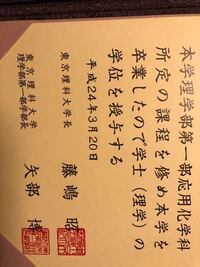 本学理学部第一部応用化学科
所定の課程を修め本学を
卒業したので学士(理学)の
学位を授与する
平成24年3月20日
東京理科大学長 藤嶋 昭
東京理科大学
理学部第一部学部長 矢部 博